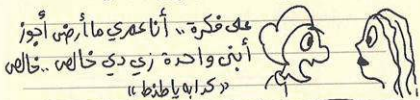 على فكرة .. أنا عمري ما أرضى أجوز
أبني واحدة زي دي خالص .. خالص
«كدابه ياطنط»